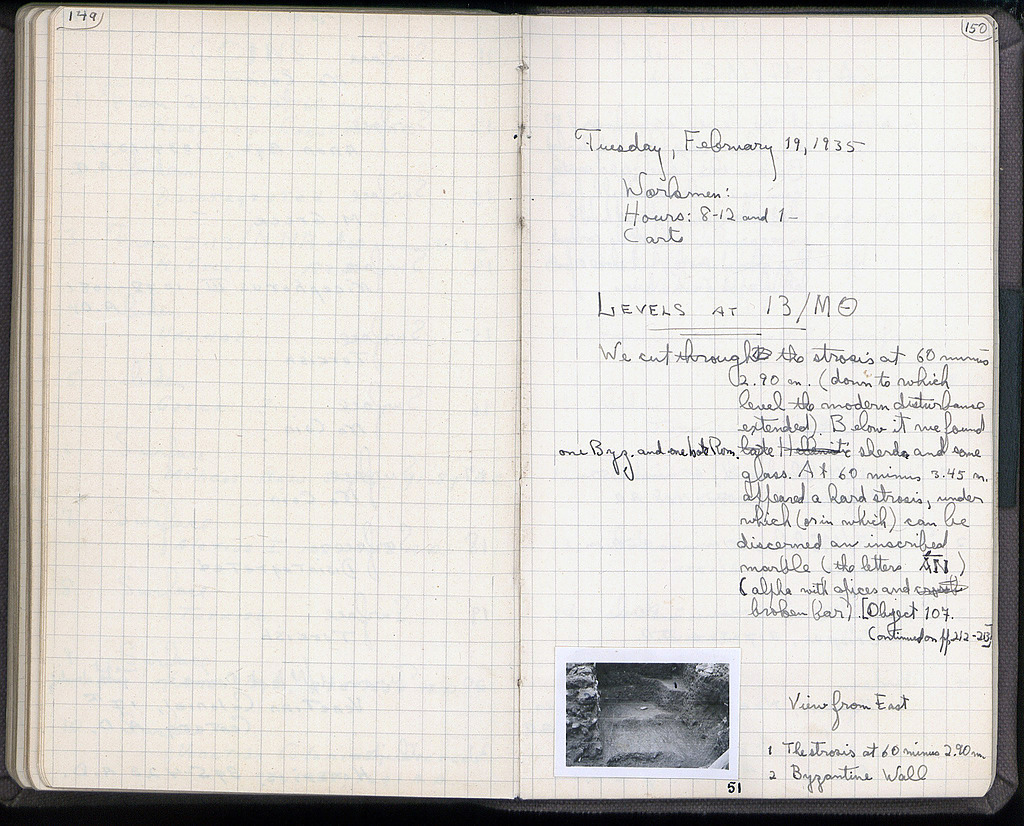 149
150
Tuesday, February 19, 1935
Workmen:
Hours: 8-12 and 1-
Carts
LEVELS AT 13/ΜΘ
We cut through the strosis at 60 minus
2.90 m. (down to which
level the modern disturbance
extended). Below it we found
one Byz. and one late Rom. late Hellenistic sherds and some
glass. At 60 minus 3.45 m.
appeared a hard strosis, under
which (or in which) can be
discerned an inscribed
marble (the letters ΑΝ)
(alpha with apices and
broken bar). [Object 107.
Continued on pp. 212-213]
View from East
1 The strosis at 60 minus 2.90 m.
2 Byzantine Wall
51